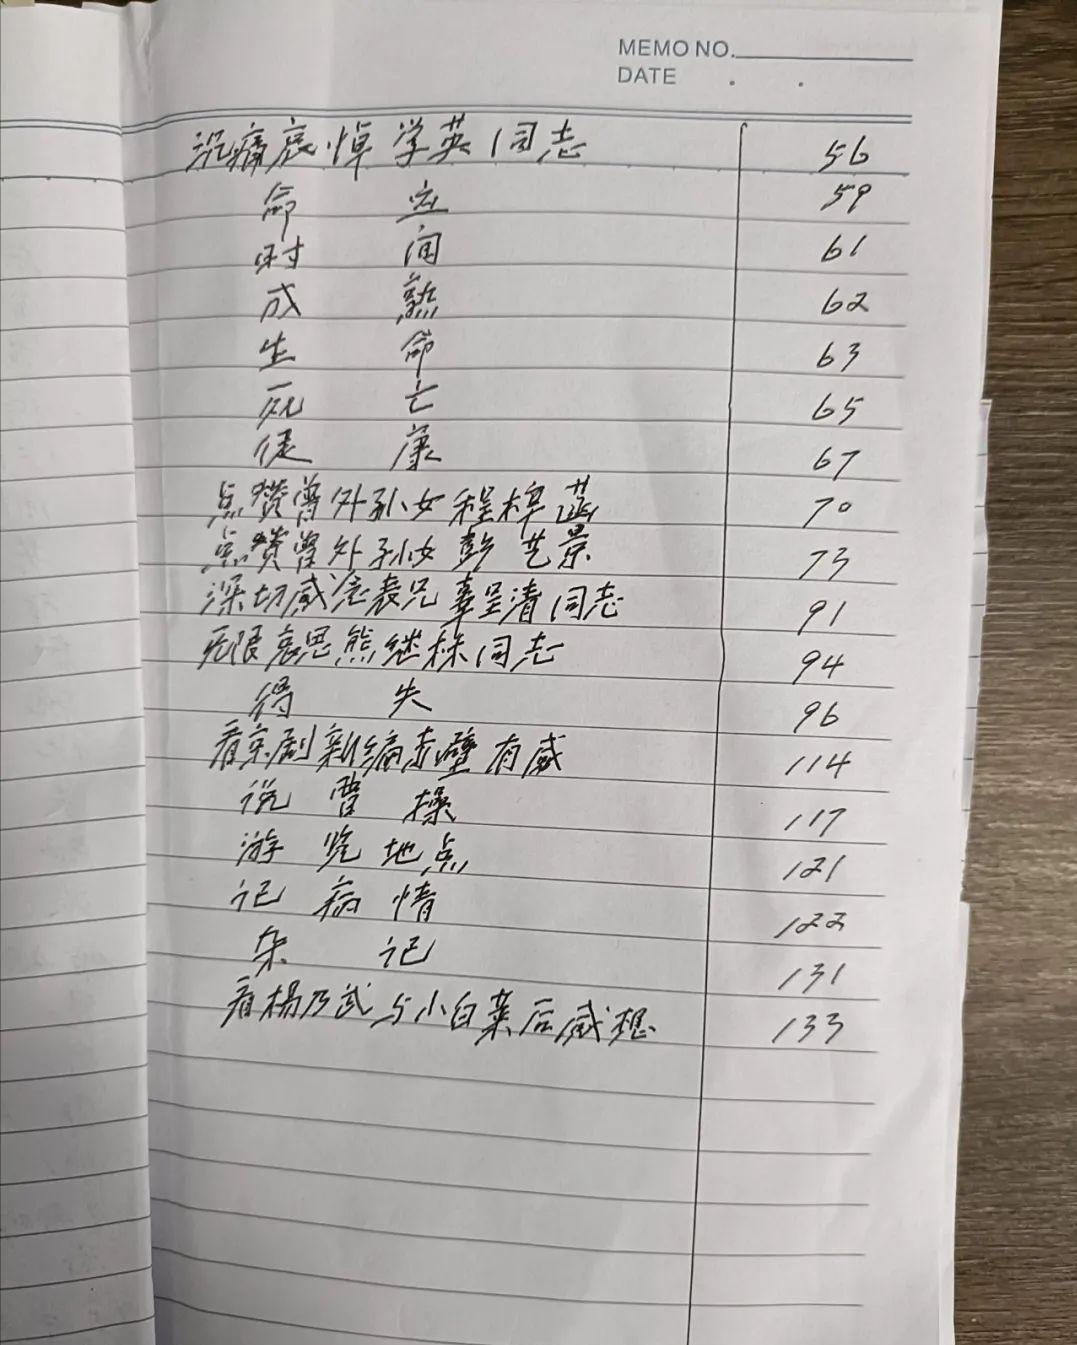 MEMO NO.
DATE . .
沉痛哀悼学英同志 56
命运 59
时间 61
成熟 62
生命 63
死亡 65
健康 67
点赞曾外孙女程梓菡 70
点赞曾外孙女彭艺景 73
深切感念表兄辜呈清同志 91
无限哀思熊继株同志 94
得失 96
看京剧新编赤壁有感 114
说曹操 117
游览地点 121
记病情 122
杂记 131
看杨乃武与小白菜后感想 133